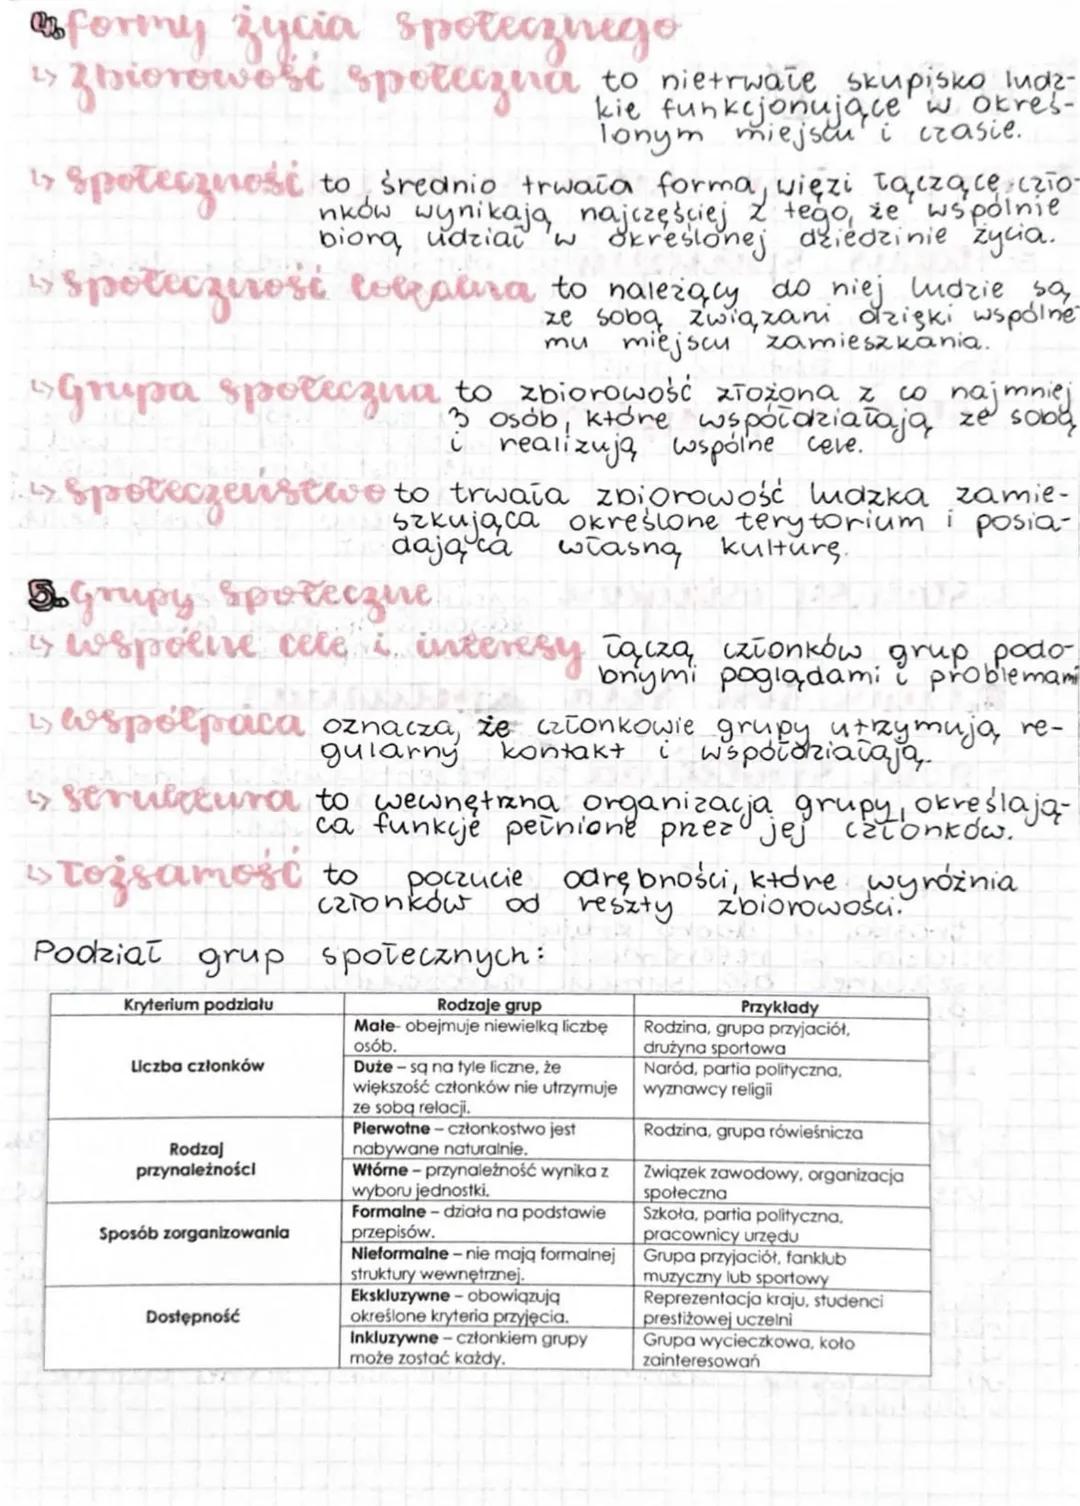 4. formy życia społecznego
↳ Zbiorowość społeczna to nietrwałe skupisko ludz-
kie funkcjonujące w okreś-
lonym miejscu i czasie.
↳ Społeczność to średnio trwała forma, więzi łączące czło-
nków wynikają najczęściej z tego, że wspólnie
biorą udział w określonej dziedzinie życia.
↳ Społeczność lokalna to należący do niej ludzie są
ze sobą związani dzięki wspólne
mu miejscu zamieszkania.
↳ Grupa społeczna to zbiorowość złożona z co najmniej
3 osób, które współdziałają ze sobą
i realizują wspólne cele.
↳ Społeczeństwo to trwała zbiorowość ludzka zamie-
szkująca określone terytorium i posia-
dająca własną kulturę.
5. Grupy społeczne
↳ wspólne cele i interesy łączą członków grup podo-
bnymi poglądami i problemami
↳ współpraca oznacza, że członkowie grupy utrzymują re-
gularny kontakt i współdziałają.
↳ struktura to wewnętrzna organizacja grupy, określają-
ca funkcje pełnione przez jej członków.
↳ tożsamość to poczucie odrębności, które wyróżnia
członków od reszty zbiorowości.
Podział grup społecznych:
Kryterium podziału Rodzaje grup Przykłady
Liczba członków
Małe- obejmuje niewielką liczbę
osób.
Rodzina, grupa przyjaciół,
drużyna sportowa
Duże – są na tyle liczne, że
większość członków nie utrzymuje
ze sobą relacji.
Naród, partia polityczna,
wyznawcy religii
Rodzaj
przynależności
Pierwotne – członkostwo jest
nabywane naturalnie.
Rodzina, grupa rówieśnicza
Wtórne – przynależność wynika z
wyboru jednostki.
Związek zawodowy, organizacja
społeczna
Sposób zorganizowania
Formalne – działa na podstawie
przepisów.
Szkoła, partia polityczna,
pracownicy urzędu
Nieformalne – nie mają formalnej
struktury wewnętrznej.
Grupa przyjaciół, fanklub
muzyczny lub sportowy
Dostępność
Ekskluzywne – obowiązują
określone kryteria przyjęcia.
Reprezentacja kraju, studenci
prestiżowej uczelni
Inkluzywne – członkiem grupy
może zostać każdy.
Grupa wycieczkowa, koło
zainteresowań